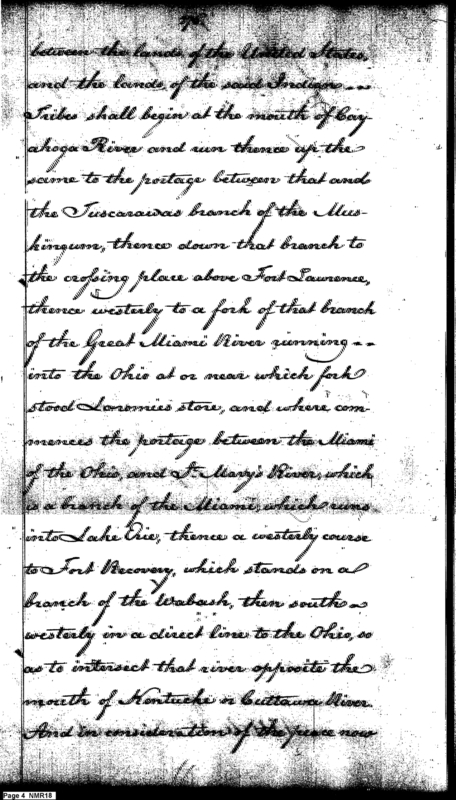 between the lands, of the United States,
and the lands, of the said Indian --
Tribes shall begin at the mouth of Cay-
ahoga River and run thence up the
same to the portage between that and
the Tuscarawas branch of the Mus-
kingum, thence down that branch to
the crossing place above Fort Lawrence,
thence westerly to a fork of that branch
of the Great Miami River running --
into the Ohio at or near which fork
stood Loromies store, and where com-
mences the portage between the Miami
of the Ohio, and St. Mary's River, which
is a branch of the Miami, which runs
into Lake Erie, thence a westerly course
to Fort Recovery, which stands on a
branch of the Wabash, then south-
westerly in a direct line to the Ohio, so
as to intersect that river opposite the
mouth of Kentucke or Cuttawa River.
And in consideration of the peace now
Page 4 NMR18